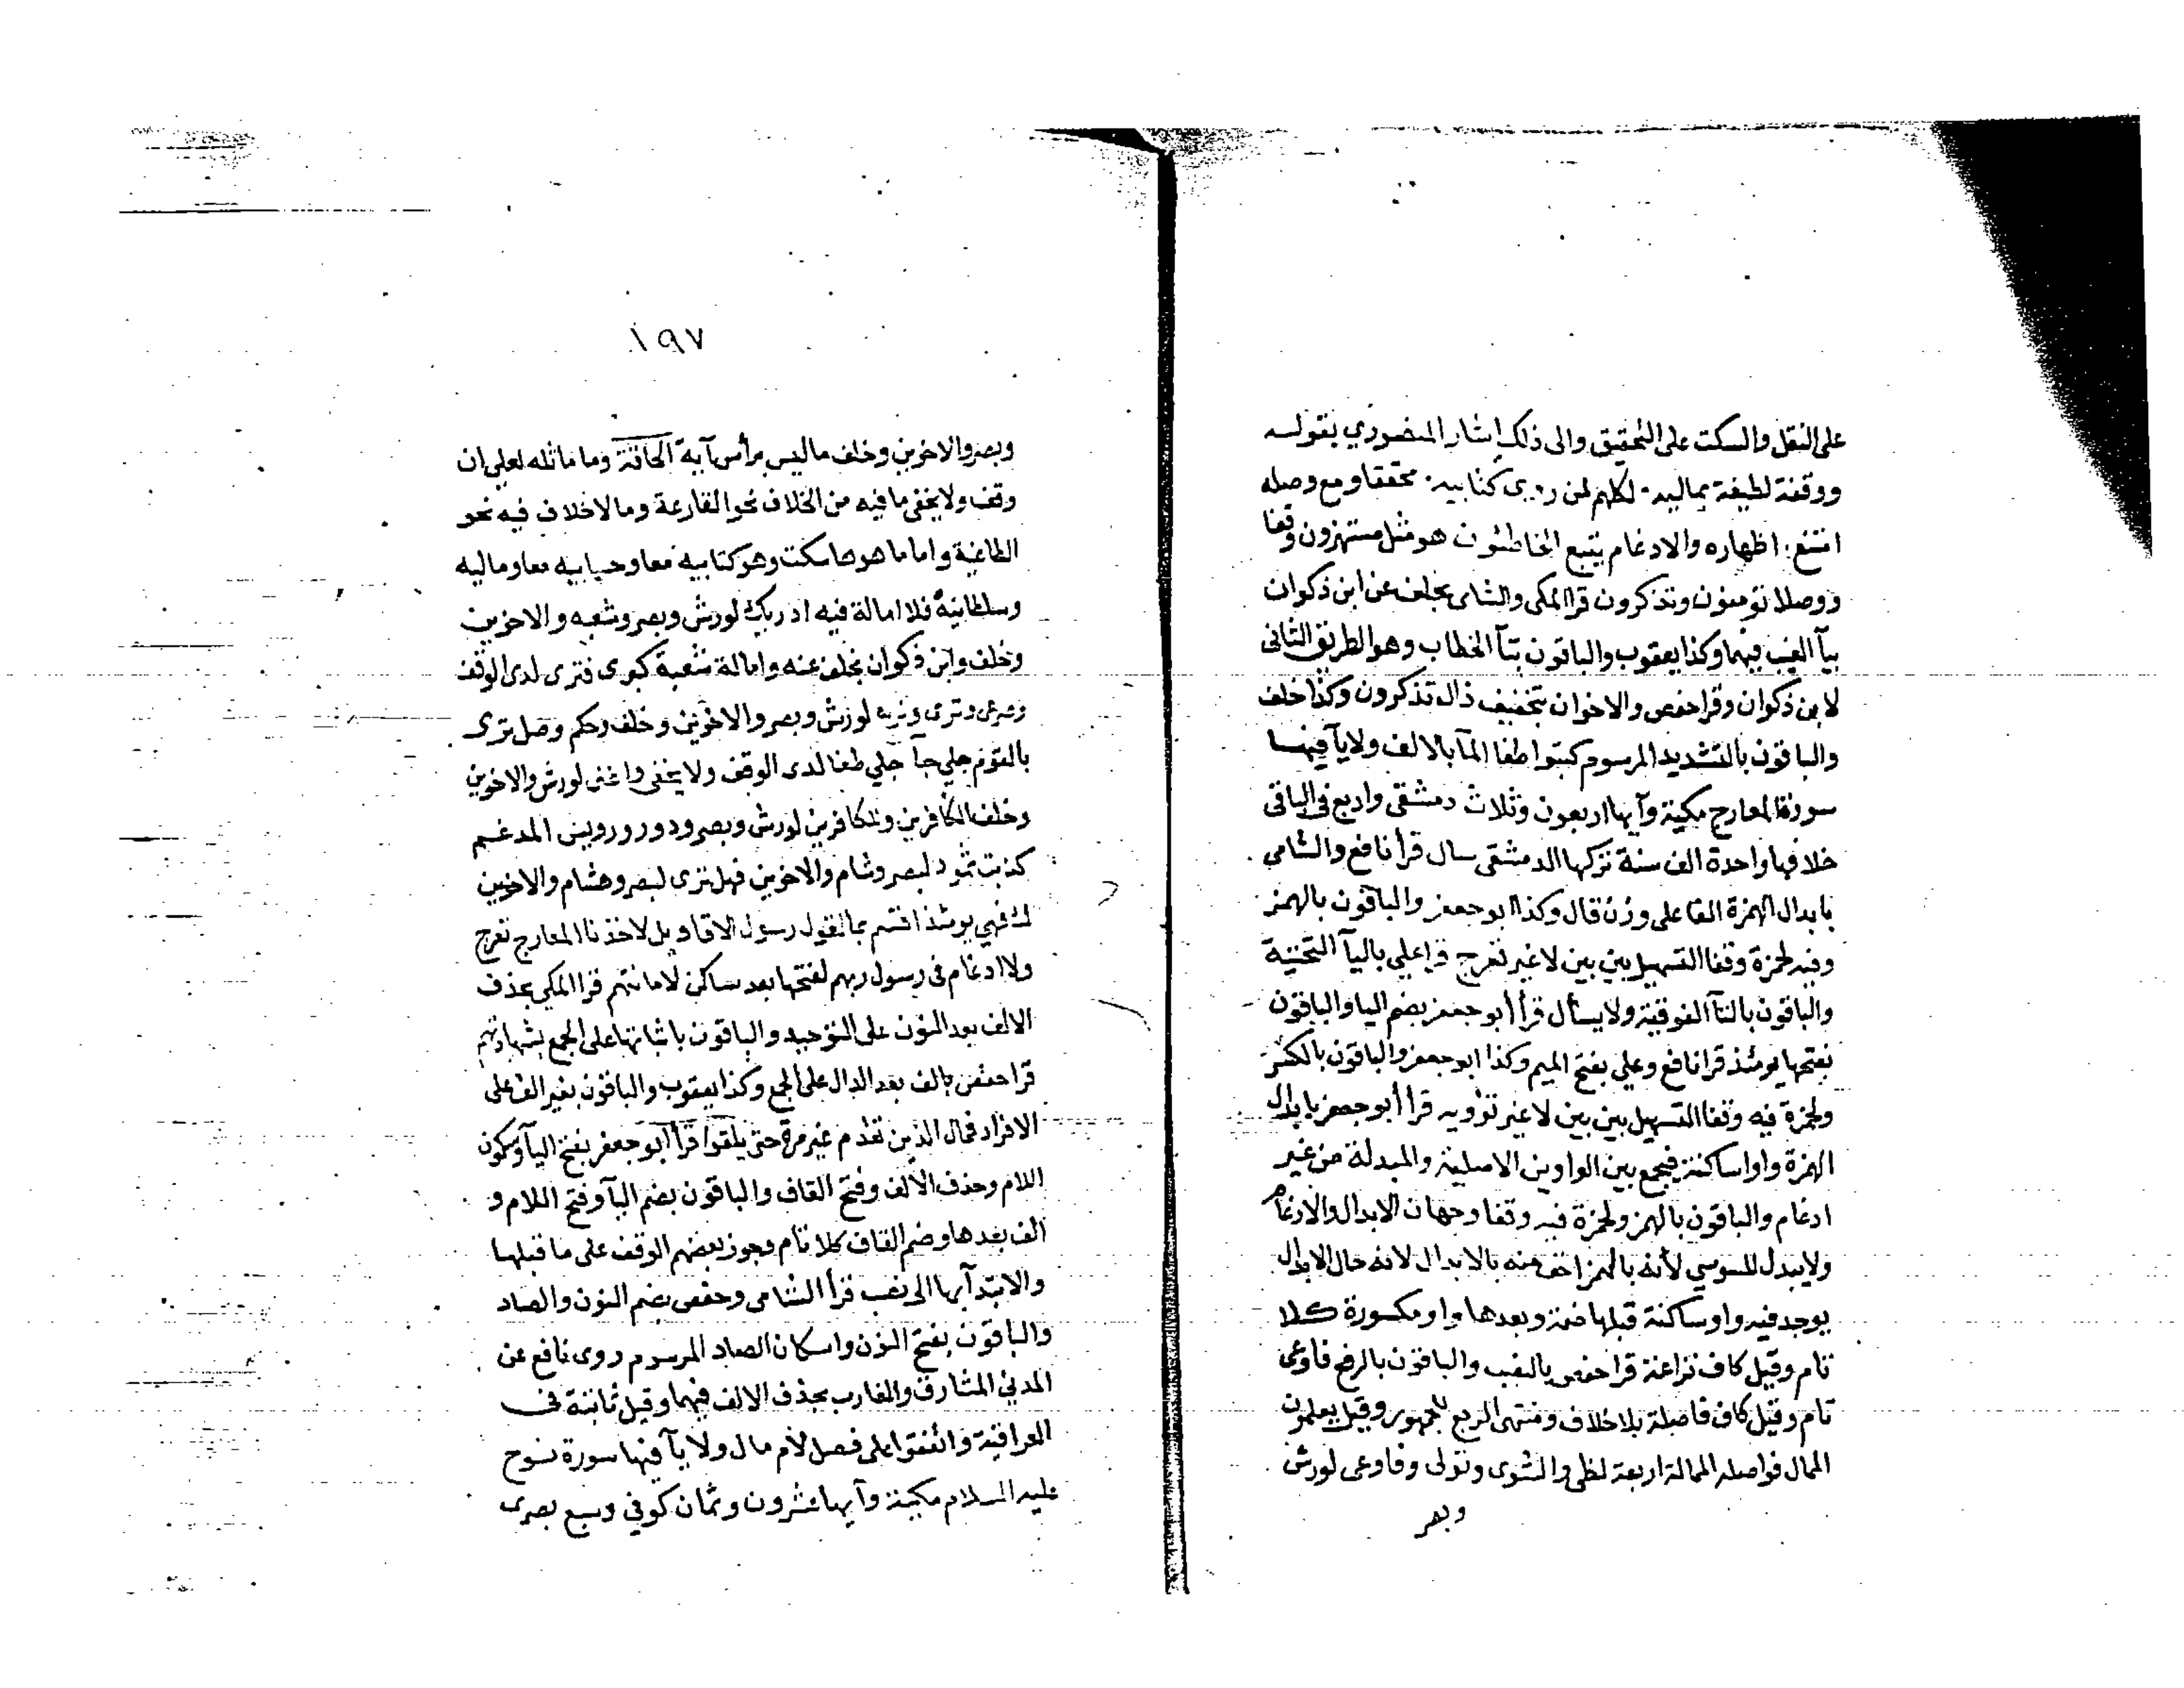 على النقل والسكت على التحقيق والى ذلك اشار المنصوري بقوله
ووقفة لطيفة بماليه لكلهم لمن روى كتابيه محققا ومع وصله
امتنع اظهاره والادغام يتبع الخاطئون هو مثل مستهزون وقفا
ووصلا تؤمنون وتذكرون قرا المكى والشامى بخلف عن ابن ذكوان
بيآ الغيب فيهما وكذا يعقوب والباقون بتآ الخطاب وهو الطريق الثانى
لابن ذكوان وقرا حفص والاخوان بتخفيف ذال تذكرون وكذا خلف
والباقون بالتشديد المرسوم كتبوا طغا المآ بالالف ولا يآ فيهما
سورة المعارج مكية وآيها اربعون وثلاث دمشقى واربع فى الباقى
خلافها واحدة الف سنة تركها الدمشقى سال قرأ نافع والشامى
بابدال الهمزة الفا على وزن قال وكذا ابو جعفر والباقون بالهمز
وفيه لحمزة وقفا التسهيل بين بين لا غير تعرج قرا على باليآ التحتية
والباقون بالتآ الفوقية ولا يسأل قرأ أبو جعفر بضم اليا والباقون
بفتحها يومئذ قرا نافع وعلي بفتح الميم وكذا ابو جعفر والباقون بالكسر
ولحمزة فيه وقفا التسهيل بين بين لا غير تؤويه قرا أبو جعفر بابدال
الهمزة واوا ساكنة فيجمع بين الواوين الاصلية والمبدلة من غير
ادغام والباقون بالهمز ولحمزة فيه وقفا وجهان الابدال والادغام
ولا يبدل للسوسي لأنه بالهمز اخف منه بالابدال لانه حال الابدال
يوجد فيه واو ساكنة قبلها ضمة وبعدها واو مكسورة كلا
تام وقيل كاف نزاعة قرا حفص بالنصب والباقون بالرفع فاوعى
تام وقيل كاف فاصلة بلا خلاف ومنتهى الربع للجمهور وقيل يعلمون
الممال فواصله الممالة اربعة لظى والشوى وتولى وفاوعى لورش
وبصر
١٩٧
وبصر والاخوين وخلف ما ليس برأس آية الحاقة وما ماثله لعلي ان
وقف ولا يخفى ما فيه من الخلاف نحو القارعة وما لا خلاف فيه نحو
الطاغية واما ما هو ها سكت وهو كتابيه معا وحسابيه معا وماليه
وسلطانيه فلا امالة فيه ادريك لورش وبصر وشعبه والاخوين
وخلف وابن ذكوان بخلف عنه وامالة شعبة كبرى فترى لدى الوقف
وصرعى وترى لورش وبصر والاخوين وخلف وحكم وصل ترى
بالقوم جلي جآ جلي طغا لدى الوقف ولا يخفى واغنى لورش والاخوين
وخلف الكافرين وللكافرين لورش وبصر ودور ورويس المدغم
كذبت ثمود لبصر وشام والاخوين فهل ترى لبصر وهشام والاخوين
ك فهي يومئذ اقسم بما لقول رسول الاقاويل لاخذنا المعارج تعرج
ولا ادغام فى رسول ربهم لفتحها بعد ساكن لاماناتهم قرا المكي بحذف
الالف بعد النون على التوحيد والباقون باثباتها على الجمع بشهاداتهم
قرا حفص بالف بعد الدال على الجمع وكذا يعقوب والباقون بغير الف على
الافراد فمال الذين تقدم غير مرة حتى يلقوا قرأ أبو جعفر بفتح اليآ وسكون
اللام وحذف الالف وفتح القاف والباقون بضم اليآ وفتح اللام و
الف بعدها وضم القاف كلا تام وجوز بعضهم الوقف على ما قبلها
والابتدآ بها الى نصب قرأ الشامى وحفص بضم النون والصاد
والباقون بفتح النون واسكان الصاد المرسوم روى نافع عن
المدني المشارق والمغارب بحذف الالف فيهما وقيل ثابتة فى
العراقية واتفقوا على فصل لام مال ولا يآ فيها سورة نوح
عليه السلام مكية وآيها عشرون وثمان كوفي وتسع بصرى